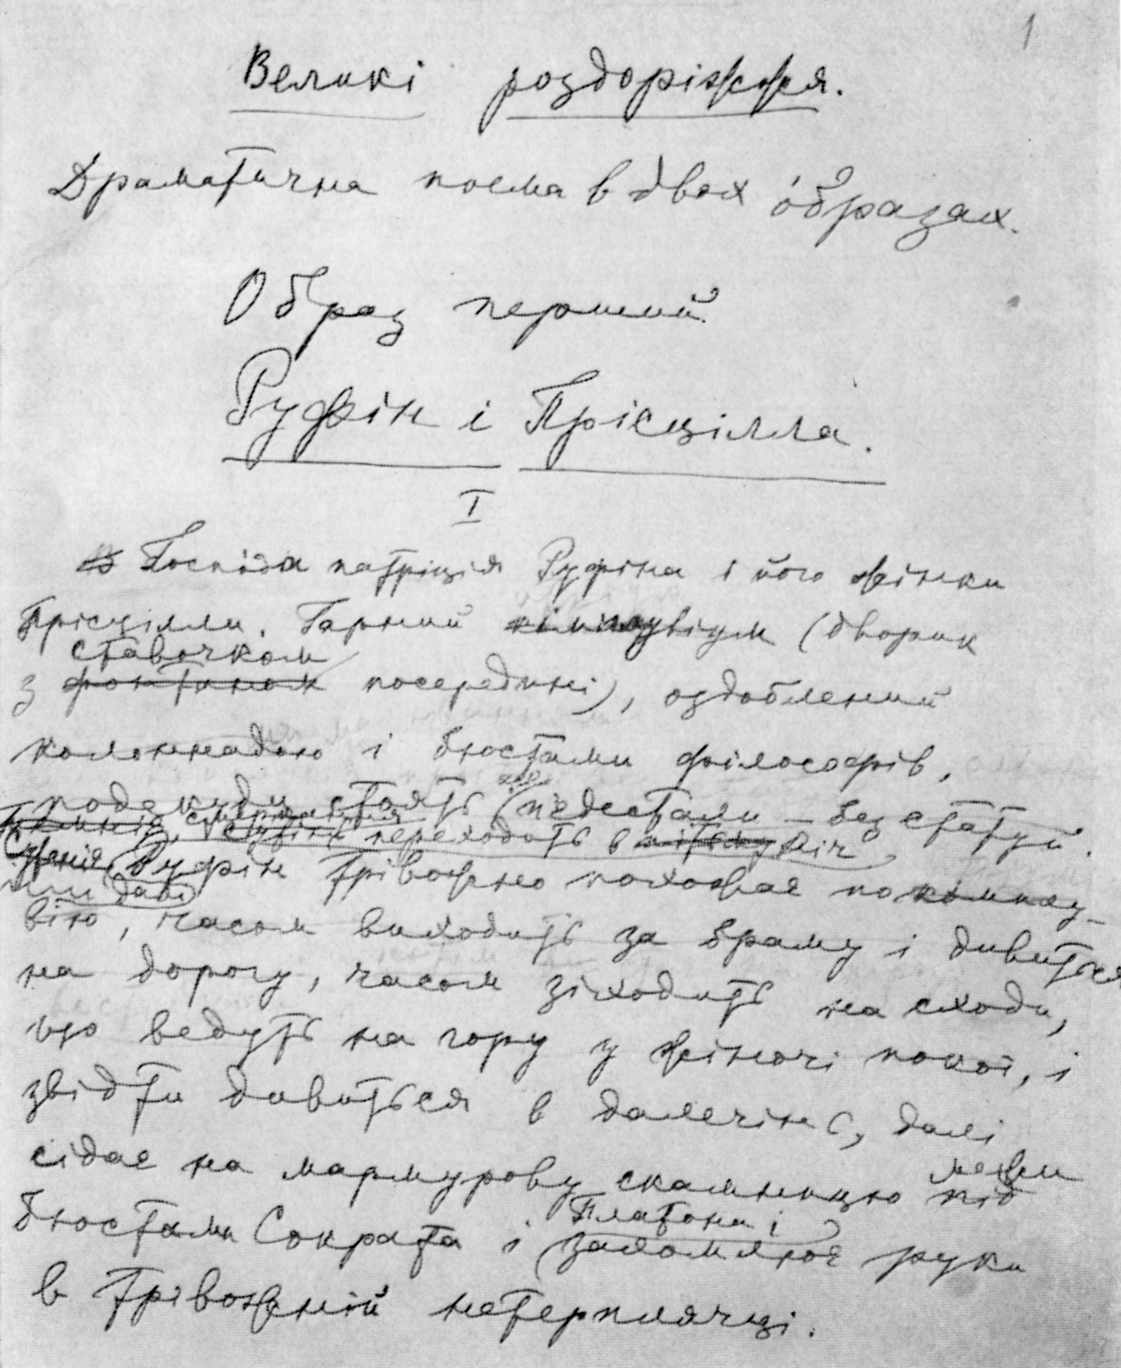 1
Великі роздоріжжя.
Драматична поема в двох о́бразах.
Образ перший
Руфін і Прісцілла.
I
Господа патріція Руфіна і його жінки
Прісцілли. Гарний імплувіум (дворик
ставочком
з фонтаном посередині), оздоблений
колоннадою і бюстами філософів,
подекуди стоять п'єдестали без статуй.
смеркання переходить в ніч
Руфін трівожно похожає по імплу-
вію, часом виходить за браму і дивиться
на дорогу, часом зіходить на сходи,
що ведуть на гору у жіночі покої, і
звідти дивиться в далечінь, далі
сідає на мармурову скамницю під
межи
Платона і
бюстами Сократа і заломлює руки
в трівожній нетерплячці.